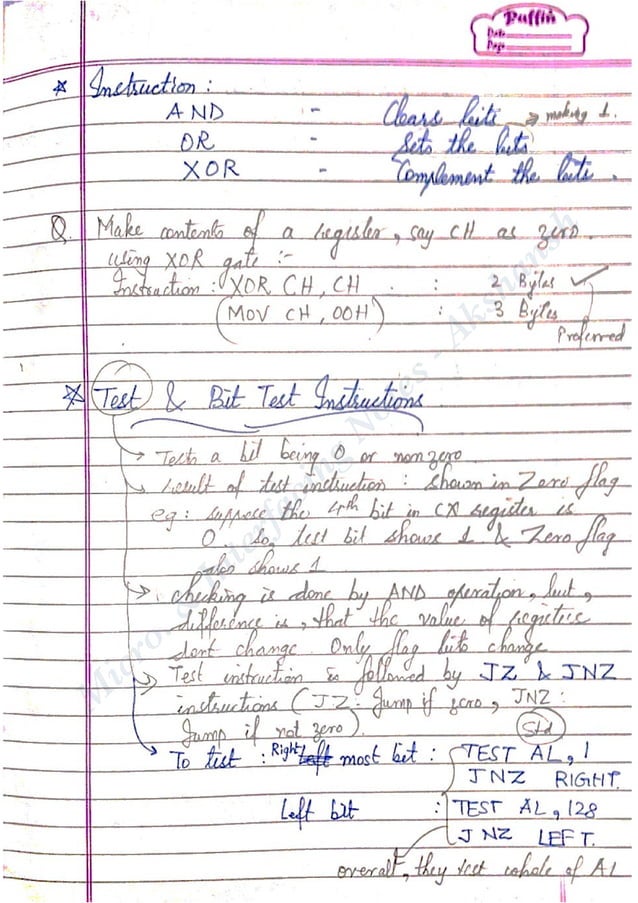 Puffin
Date
Page
* Instruction :
AND - Clears bits → making 1.
OR - Sets the bits
XOR - Complement the bits.
Q. Make contents of a register, say CH as zero.
using XOR gate :-
Instruction : XOR CH, CH : 2 Bytes ✓
(MOV CH, 00H) : 3 Bytes
Preferred
* Test & Bit Test Instructions
→ Tests a bit being 0 or nonzero
→ result of test instruction : shown in Zero flag
eg : suppose the 4th bit in CX register is
0 so, test bit shows 1 & Zero flag
also shows 1
→ checking is done by AND operation, but,
difference is, that the value of registers
dont change. Only flag bits change
→ Test instruction is followed by JZ & JNZ
instructions (JZ : Jump if zero, JNZ :
Jump if not zero). Std
→ To test : Right Left most bit : TEST AL, 1
JNZ RIGHT.
Left bit : TEST AL, 128
JNZ LEFT.
overall, they test whole of AL
Micro & Interfacing Notes - Akshansh